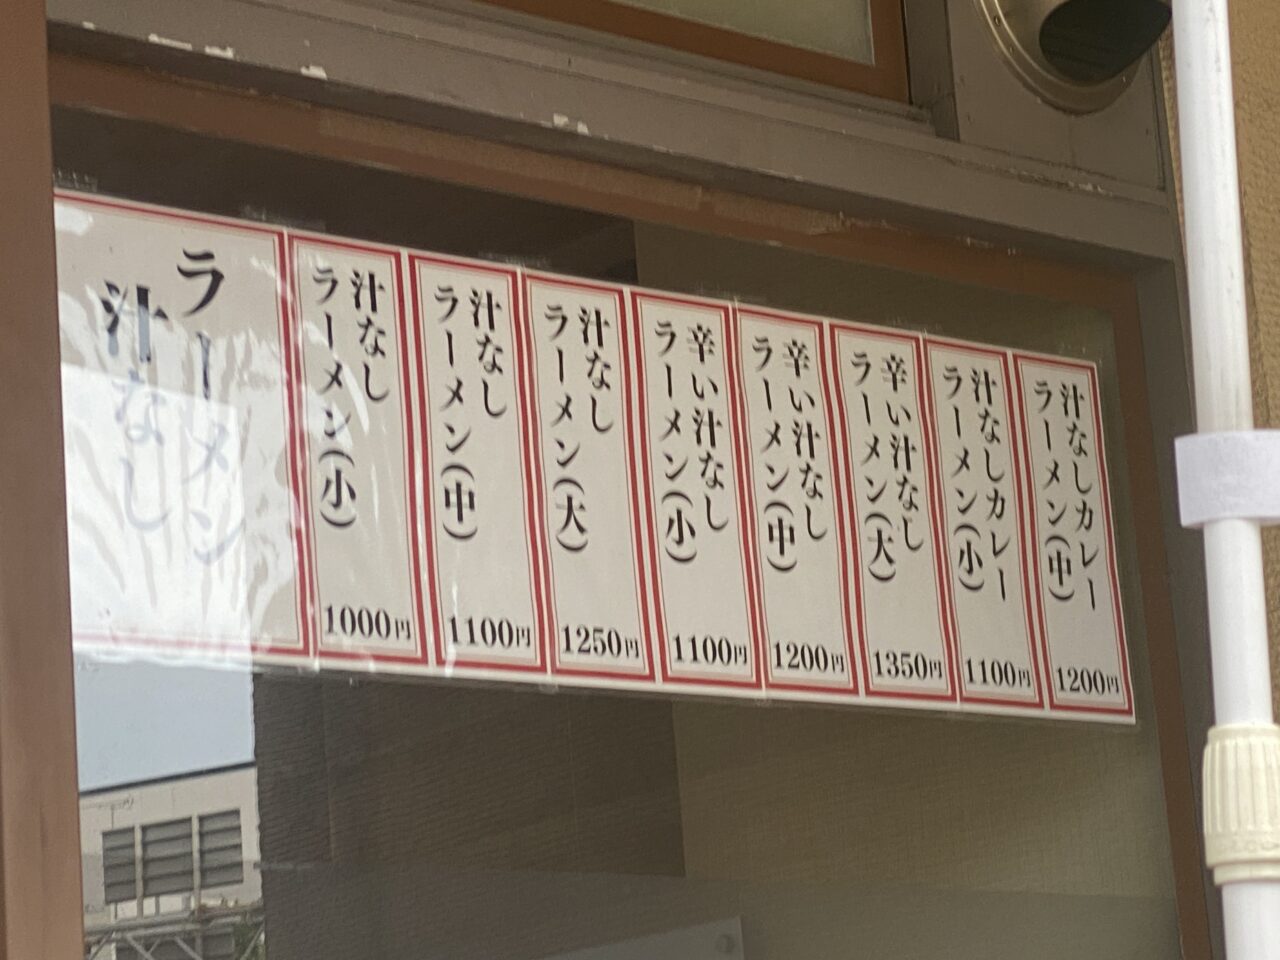 ラーメン
汁なし
汁なし
ラーメン(小)
1000円
汁なし
ラーメン(中)
1100円
汁なし
ラーメン(大)
1250円
辛い汁なし
ラーメン(小)
1100円
辛い汁なし
ラーメン(中)
1200円
辛い汁なし
ラーメン(大)
1350円
汁なしカレー
ラーメン(小)
1100円
汁なしカレー
ラーメン(中)
1200円